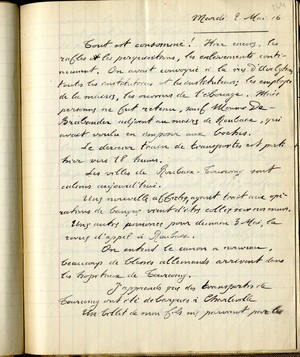 Mardi 2 Mai 16
Tout est consommé ! Hier encore, les
rafles et les perquisitions, les enlèvements conti-
nuèrent. On avait convoqué à la rue d'
toutes les institutrices et les instituteurs, les employés
de la mairie, les ouvroirs de l'éclairage. Mais
personne ne fut retenu, sauf Monsieur De
Brabander adjoint au maire de Roubaix, qui
avait voulu en imposer aux boches.
Le dernier train de transportés est parti
hier vers 18 heures.
Les villes de Roubaix-Tourcoing sont
calmes aujourd'hui.
Une nouvelle affiche, ayant trait aux opé-
rations de vient d'être collée sur nos murs.
Une autre, annonce pour demain 3 Mai, la
revue d'appel à Roubaix.
On entend le canon à nouveau,
beaucoup de blessés allemands arrivent dans
les hôpitaux de Tourcoing.
J'apprends que des transportés de
Tourcoing ont été débarqués à Charleville
Un billet de mon fils me parvient par les